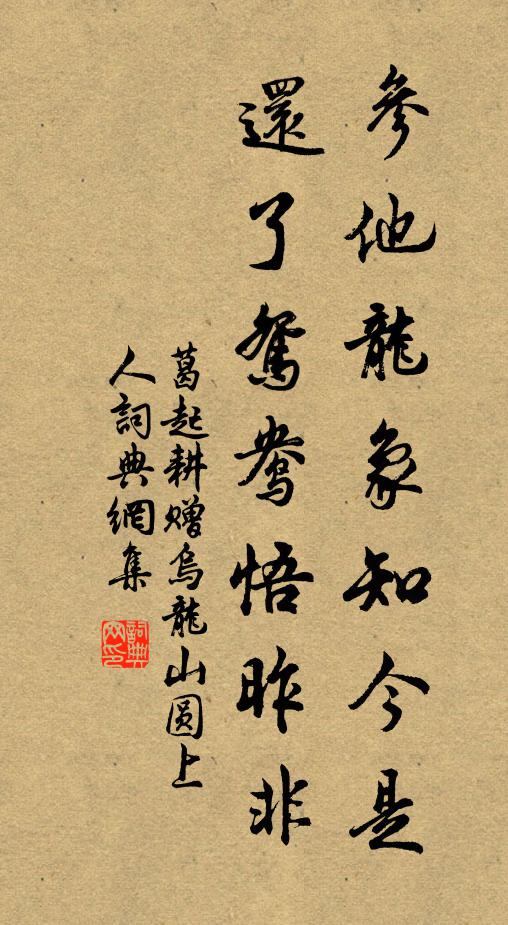 參他龍象知今是
還了鴛鴦悟昨非
葛起耕赠烏龍山圆上
人詞典網集
詞典
网印